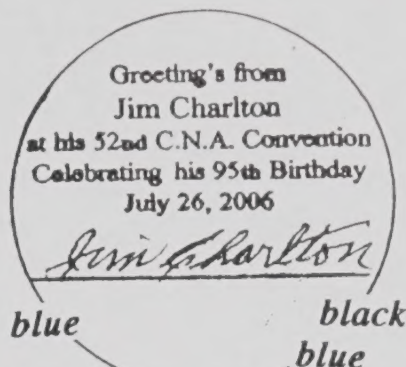 Greeting's from
Jim Charlton
at his 52nd C.N.A. Convention
Celebrating his 95th Birthday
July 26, 2006
Jim Charlton
blue
black
blue